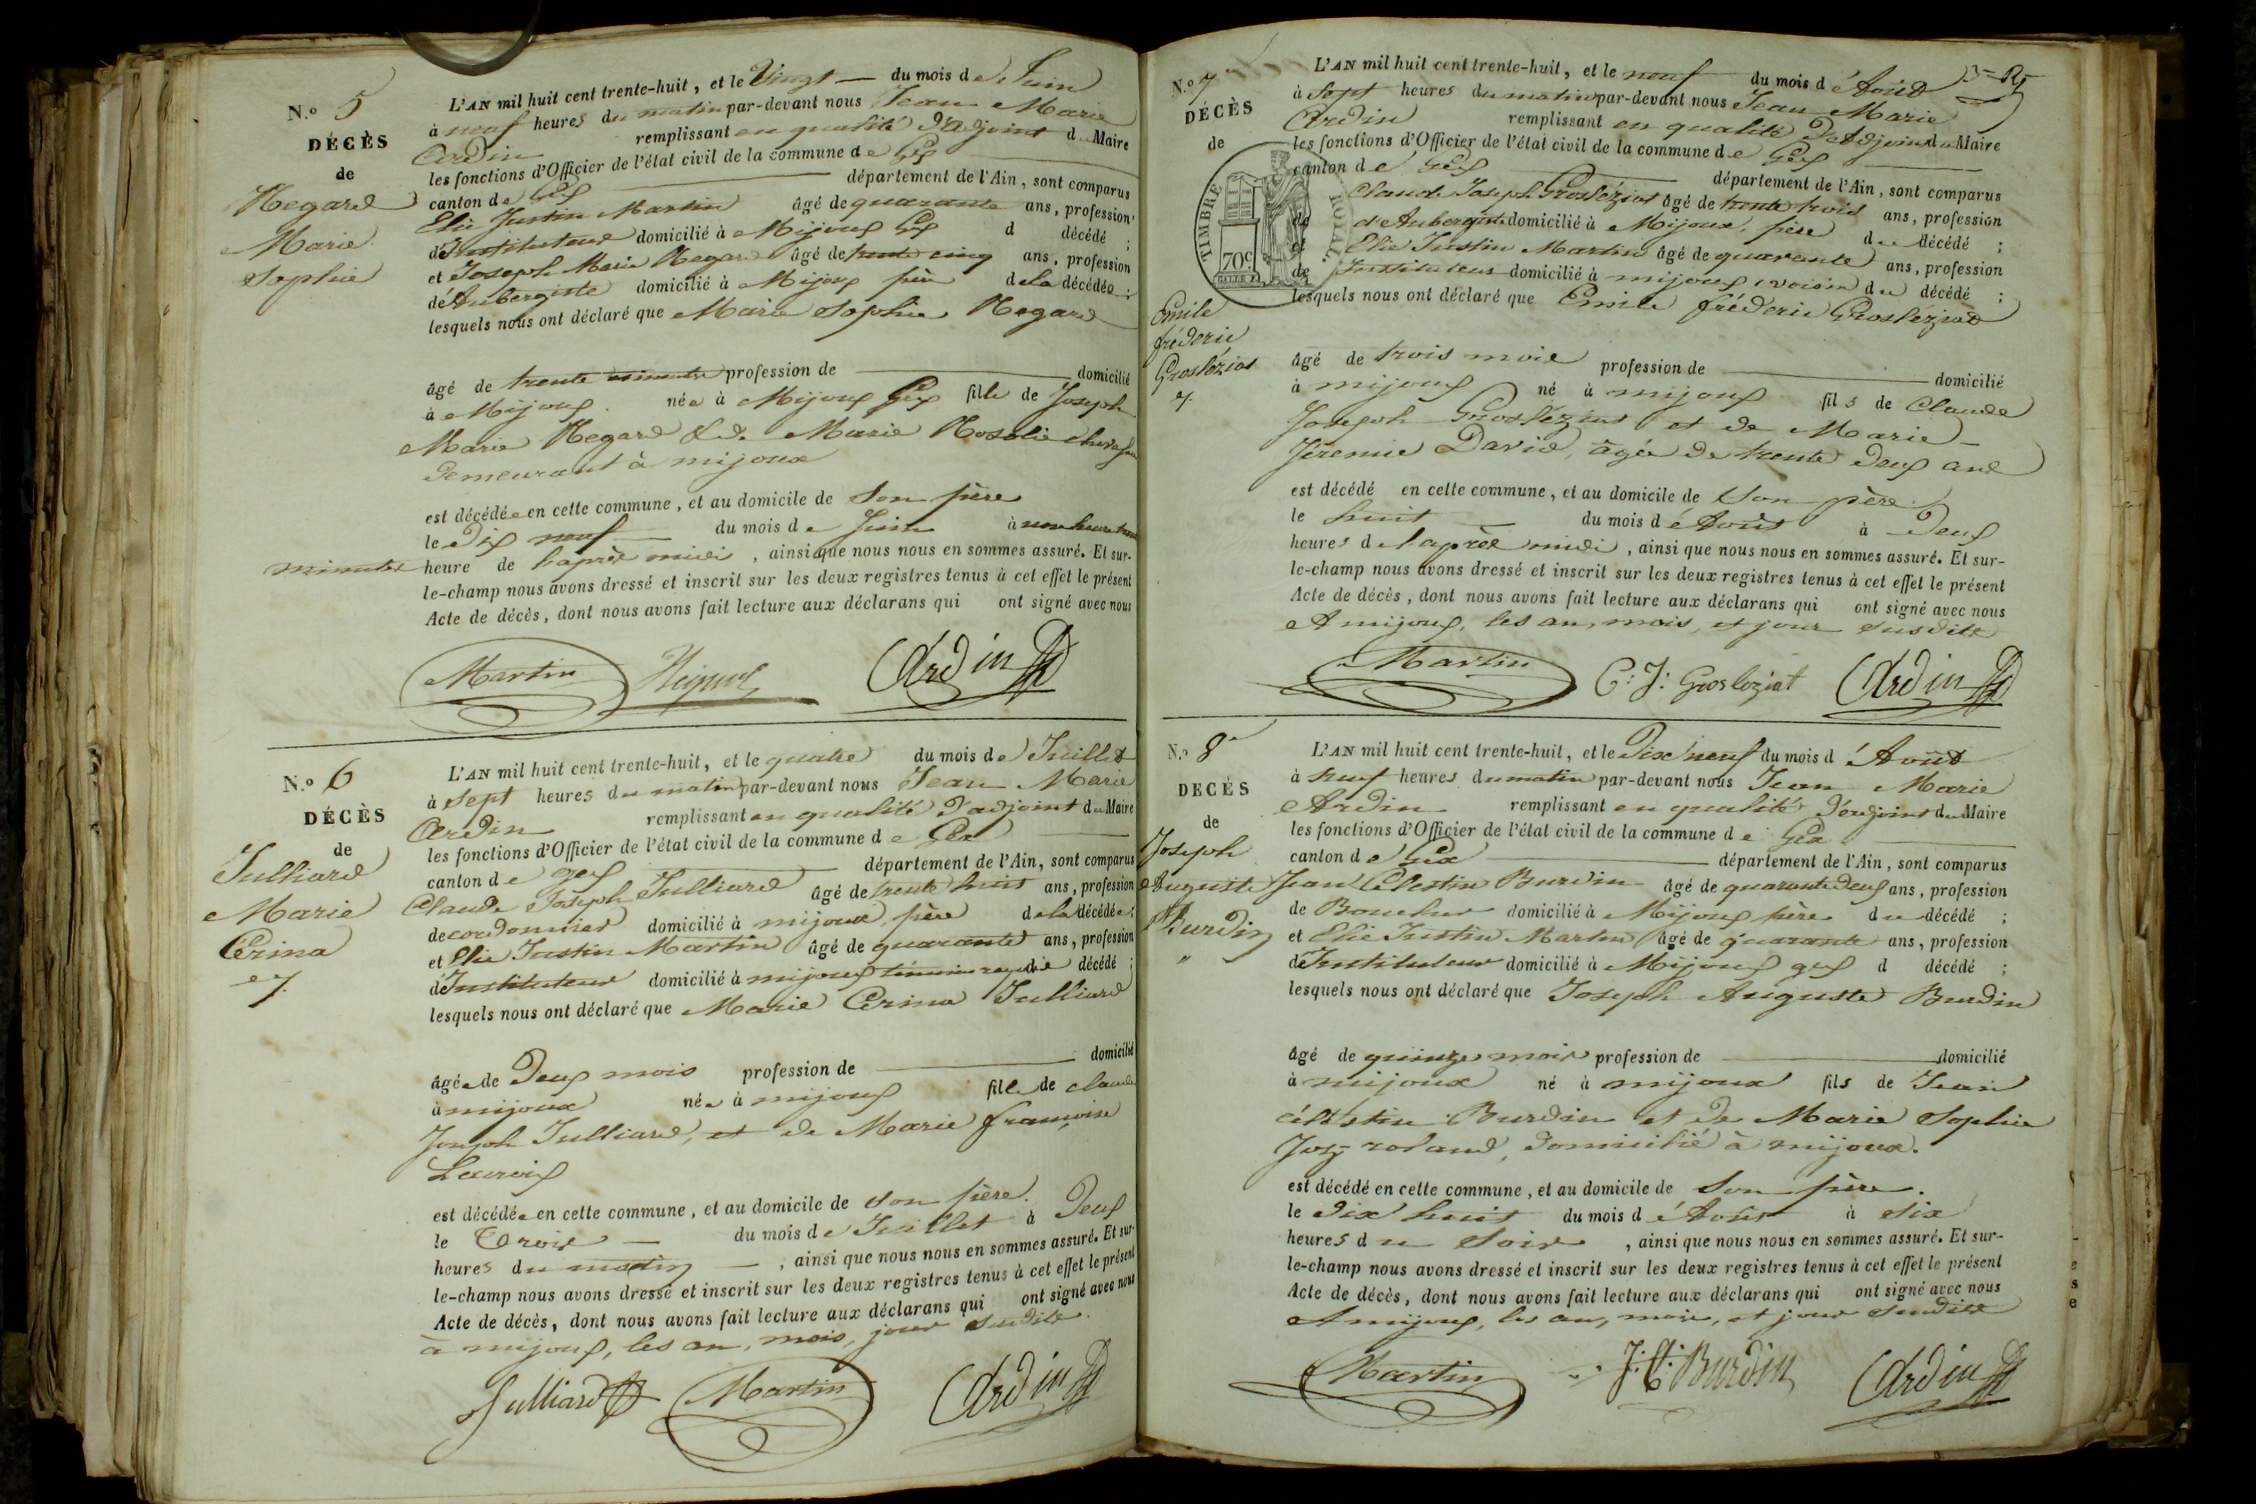 N.o 5
DÉCÈS
de
Regard
Marie
Sophie
L'AN mil huit cent trente-huit, et le Vingt du mois de Juin
à neuf heures du matin par-devant nous Jean Marie
Ardin remplissant en qualité d'adjoint du Maire
les fonctions d'Officier de l'état civil de la commune de Gex
canton de Gex département de l'Ain, sont comparus
Elie Justin Martin âgé de quarante ans, profession
d'Instituteur domicilié à Mijoux Gex d décédé ;
et Joseph Marie Regard âgé de trente cinq ans, profession
d'Aubergiste domicilié à Mijoux père de la décédée ;
lesquels nous ont déclaré que Marie Sophie Regard
âgé de trente minutes profession de domicilié
à Mijoux. née à Mijoux Gex fille de Joseph
Marie Regard & de Marie Rosalie
demeurant à mijoux
est décédée en cette commune, et au domicile de son père
le Dix neuf du mois de Juin à une heure trente
minutes heure de l'après midi, ainsi que nous nous en sommes assuré. Et sur-
le-champ nous avons dressé et inscrit sur les deux registres tenus à cet effet le présent
Acte de décès, dont nous avons fait lecture aux déclarans qui ont signé avec nous
Martin Regard Ardin
N.o 6
DÉCÈS
de
Julliard
Marie
Cerina
7.
L'AN mil huit cent trente-huit, et le quatre du mois de Juillet
à sept heures du matin par-devant nous Jean Marie
Ardin remplissant en qualité d'adjoint du Maire
les fonctions d'Officier de l'état civil de la commune de Gex
canton de gex département de l'Ain, sont comparus
Claude Joseph Julliard âgé de trente huit ans, profession
de cordonnier domicilié à mijoux, père de la décédée ;
et Elie Justin Martin âgé de quarante ans, profession
d'Instituteur domicilié à mijoux témoin décédé ;
lesquels nous ont déclaré que Marie Cerina Julliard
âgée de Deux mois profession de domicilié
à mijoux née à mijoux fille de claude
Joseph Julliard, et de Marie françoise
Lacroix
est décédée en cette commune, et au domicile de son père.
le Trois du mois de Juillet à Deux
heures du matin, ainsi que nous nous en sommes assuré. Et sur-
le-champ nous avons dressé et inscrit sur les deux registres tenus à cet effet le présent
Acte de décès, dont nous avons fait lecture aux déclarans qui ont signé avec nous
à mijoux, les an, mois, jour susdits.
Julliard Martin Ardin
N.o 7
DÉCÈS
de
TIMBRE ROYAL.
70c
Emile
fréderic
Grosléziat
7.
L'AN mil huit cent trente-huit, et le neuf du mois d'Août
à Sept heures du matin par-devant nous Jean Marie
Ardin remplissant en qualité d'Adjoint du Maire
les fonctions d'Officier de l'état civil de la commune de Gex
canton de Gex département de l'Ain, sont comparus
Claude Joseph Grosléziat âgé de trente trois ans, profession
d'Aubergiste domicilié à Mijoux, père du décédé ;
et Elie Justin Martin âgé de quarante ans, profession
de Instituteur domicilié à mijoux voisin du décédé ;
lesquels nous ont déclaré que Emile fréderic Grosléziat
âgé de trois mois profession de domicilié
à mijoux né à mijoux fils de Claude
Joseph Grosléziat et de Marie
Jéremie David, âgée de trente deux ans
est décédé en cette commune, et au domicile de Son père
le huit du mois d'Août à Deux
heures de l'après midi, ainsi que nous nous en sommes assuré. Et sur-
le-champ nous avons dressé et inscrit sur les deux registres tenus à cet effet le présent
Acte de décès, dont nous avons fait lecture aux déclarans qui ont signé avec nous
A mijoux, les an, mois, et jour susdits
Martin C: J: Grosleziat Ardin
N.o 8
DÉCÈS
de
Joseph
Auguste
Burdin
"
L'AN mil huit cent trente-huit, et le Dix neuf du mois d'Août
à neuf heures du matin par-devant nous Jean Marie
Ardin remplissant en qualité d'adjoint du Maire
les fonctions d'Officier de l'état civil de la commune de Gex
canton de Gex département de l'Ain, sont comparus
Jean Célestin Burdin âgé de quarante deux ans, profession
de Boucher domicilié à Mijoux père du décédé ;
et Elie Justin Martin âgé de quarante ans, profession
d'Instituteur domicilié à Mijoux gex d décédé ;
lesquels nous ont déclaré que Joseph Auguste Burdin
âgé de quinze mois profession de domicilié
à mijoux né à mijoux fils de Jean
célestin Burdin et de Marie Sophie
domicilié à mijoux.
est décédé en cette commune, et au domicile de Son père.
le Dix huit du mois d'Août à six
heures du Soir, ainsi que nous nous en sommes assuré. Et sur-
le-champ nous avons dressé et inscrit sur les deux registres tenus à cet effet le présent
Acte de décès, dont nous avons fait lecture aux déclarans qui ont signé avec nous
A mijoux, les an, mois, et jour susdits
Martin J: C: Burdin Ardin